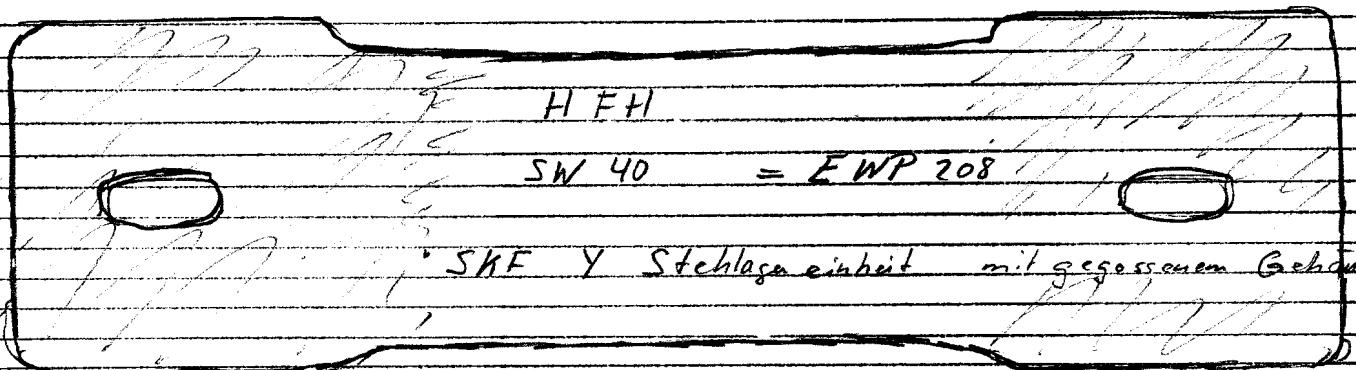 H F H
SW 40 = EWP 208
SKF Y Stehlagereinheit mit gegossenem